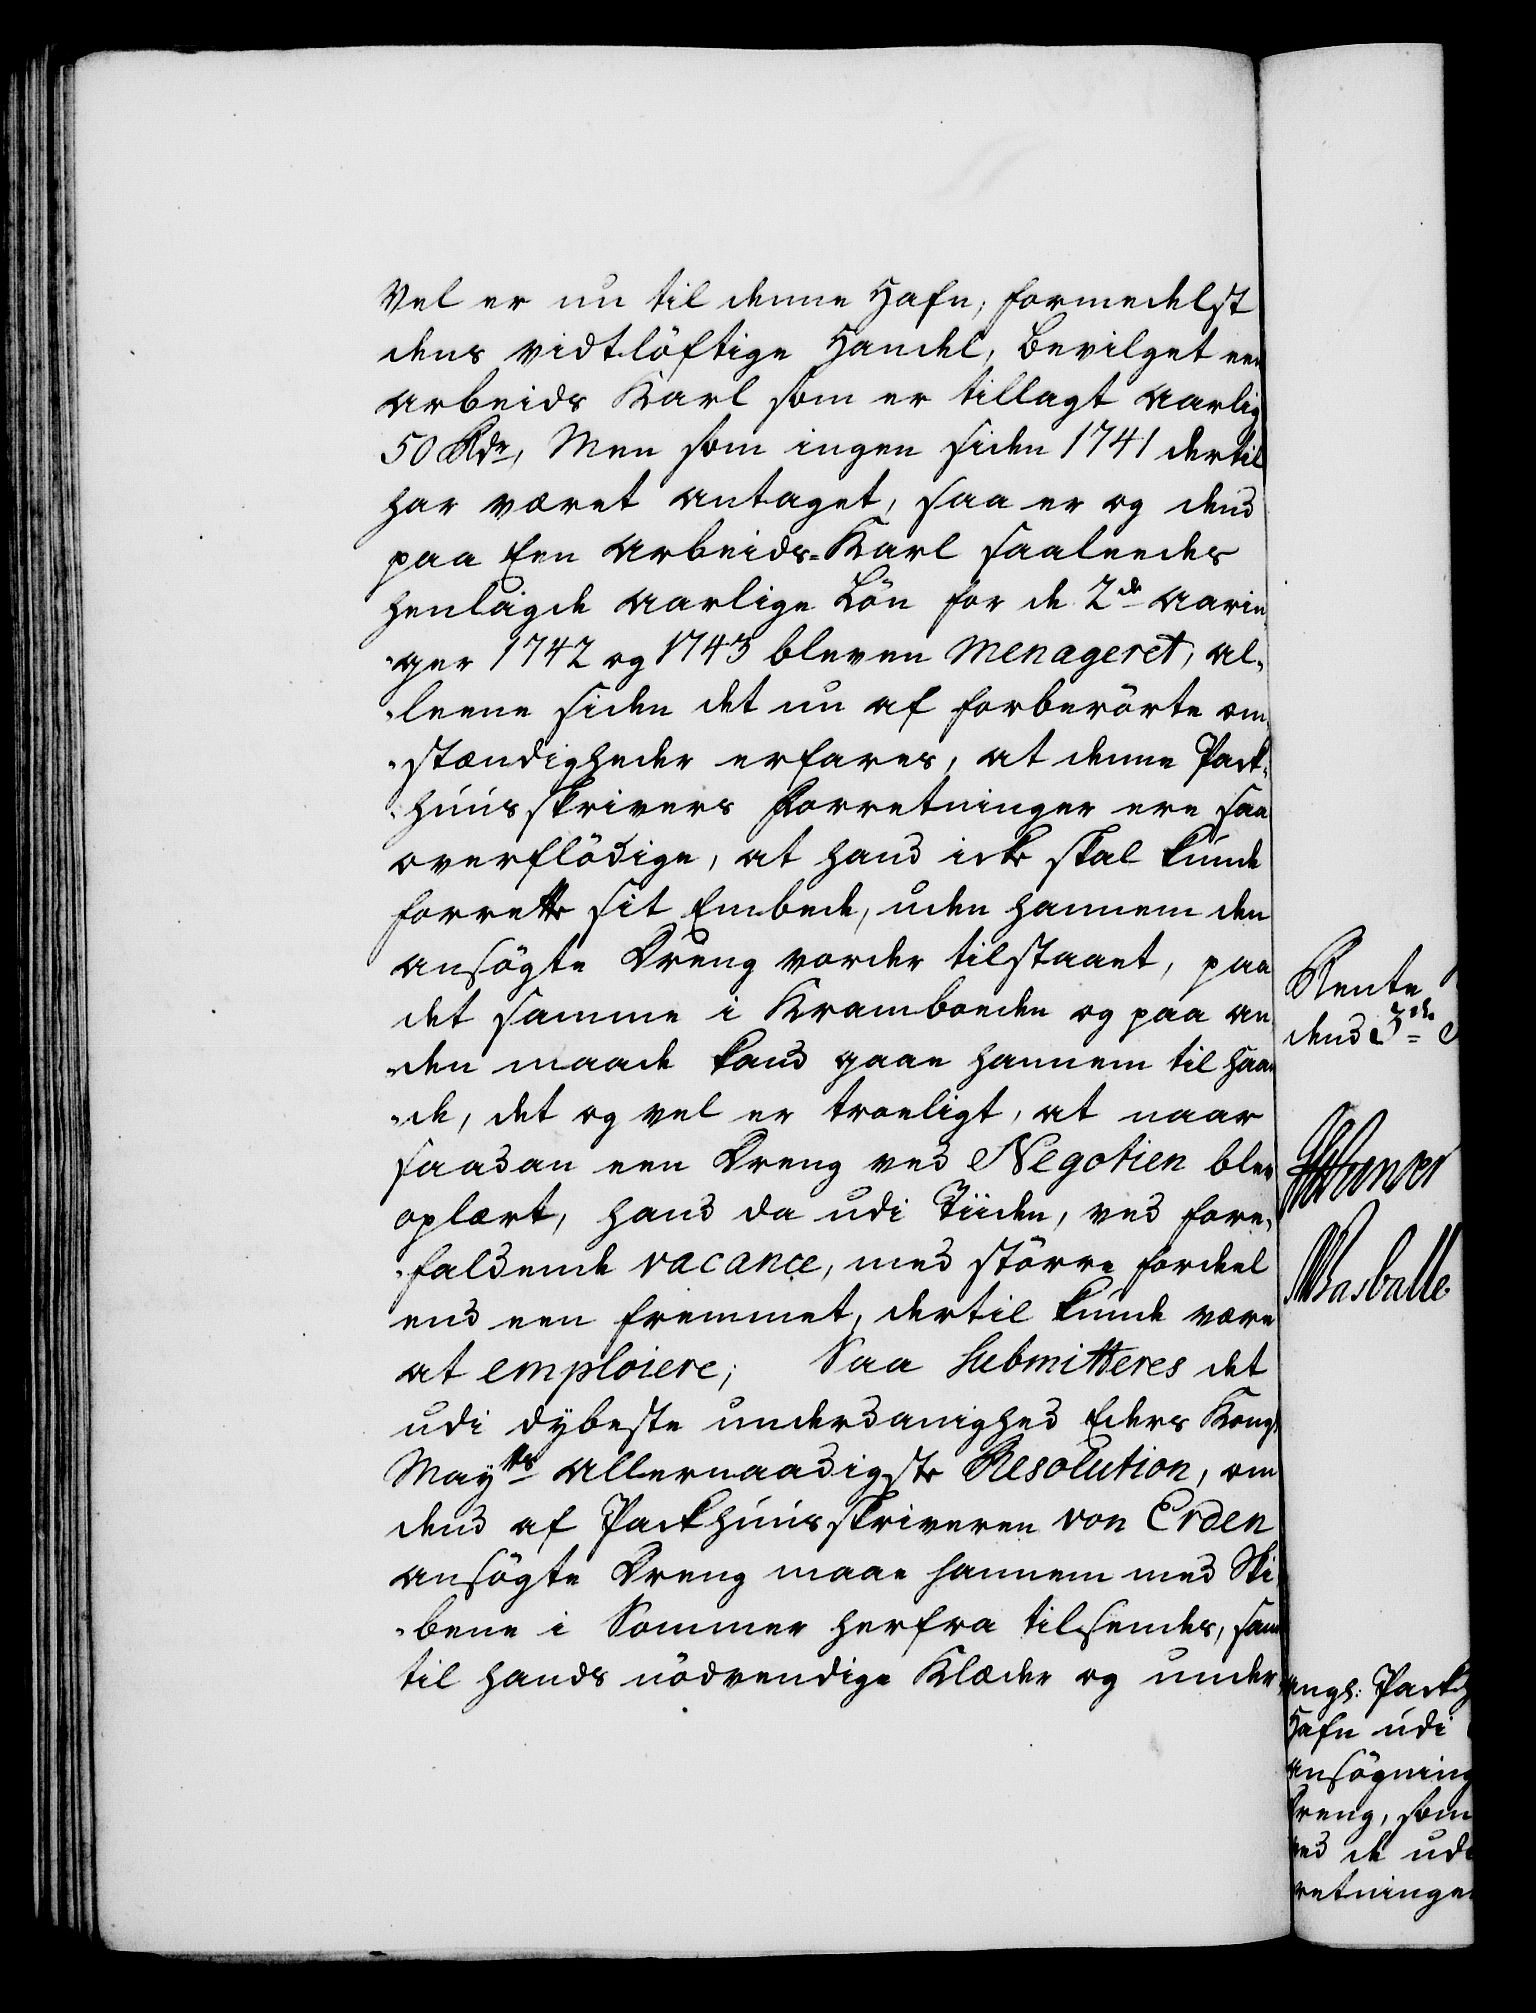 Vel er nu til denne Hafn, formedelst
dens vidtlöftige Handel, bevilget een
Arbeids Karl som er tillagt aarlig
50 Rdr, Men som ingen siden 1741 dertil
har været antaget, saa er og dend
paa Een Arbeids-Karl saaleedes
henlagde aarlige Lön for de 2de Aarin¬
¬ger 1742 og 1743 bleven menageret, al¬
¬leene siden det nu af forberörte om¬
¬stændigheder erfares, at denne Pack¬
¬huusskrivers Forretninger ere saa
overflödige, at hand icke skal kunde
forrette sit Embede, uden hannem den
ansögte Dreng vorder tilstaaet, paa
det samme i Kramboeden og paa an¬
¬den maade kand gaae hannem til Haan
¬de, det og vel er troeligt, at naar
saadan een Dreng ved Negotien blev
oplært, hand da udi Tiiden, ved fore¬
¬faldende vacance, med större fordeel
end een fremmet, dertil kunde være
at emploiere; Saa submitteres det
udi dybeste underdanighed Eders Kongl
Mayts allernaadigste Resolution, om
dend af Packhuusskriveren von Erden
ansögte Dreng maae hannem med Ski¬
¬bene i Sommer herfra tilsendes, samt
til hands nödvendige Klæder og under¬
Rente
dend 3de
Wasballe
angl: Packh
Hafn udi
ansögning
Dreng, som
ved de ud
retninger